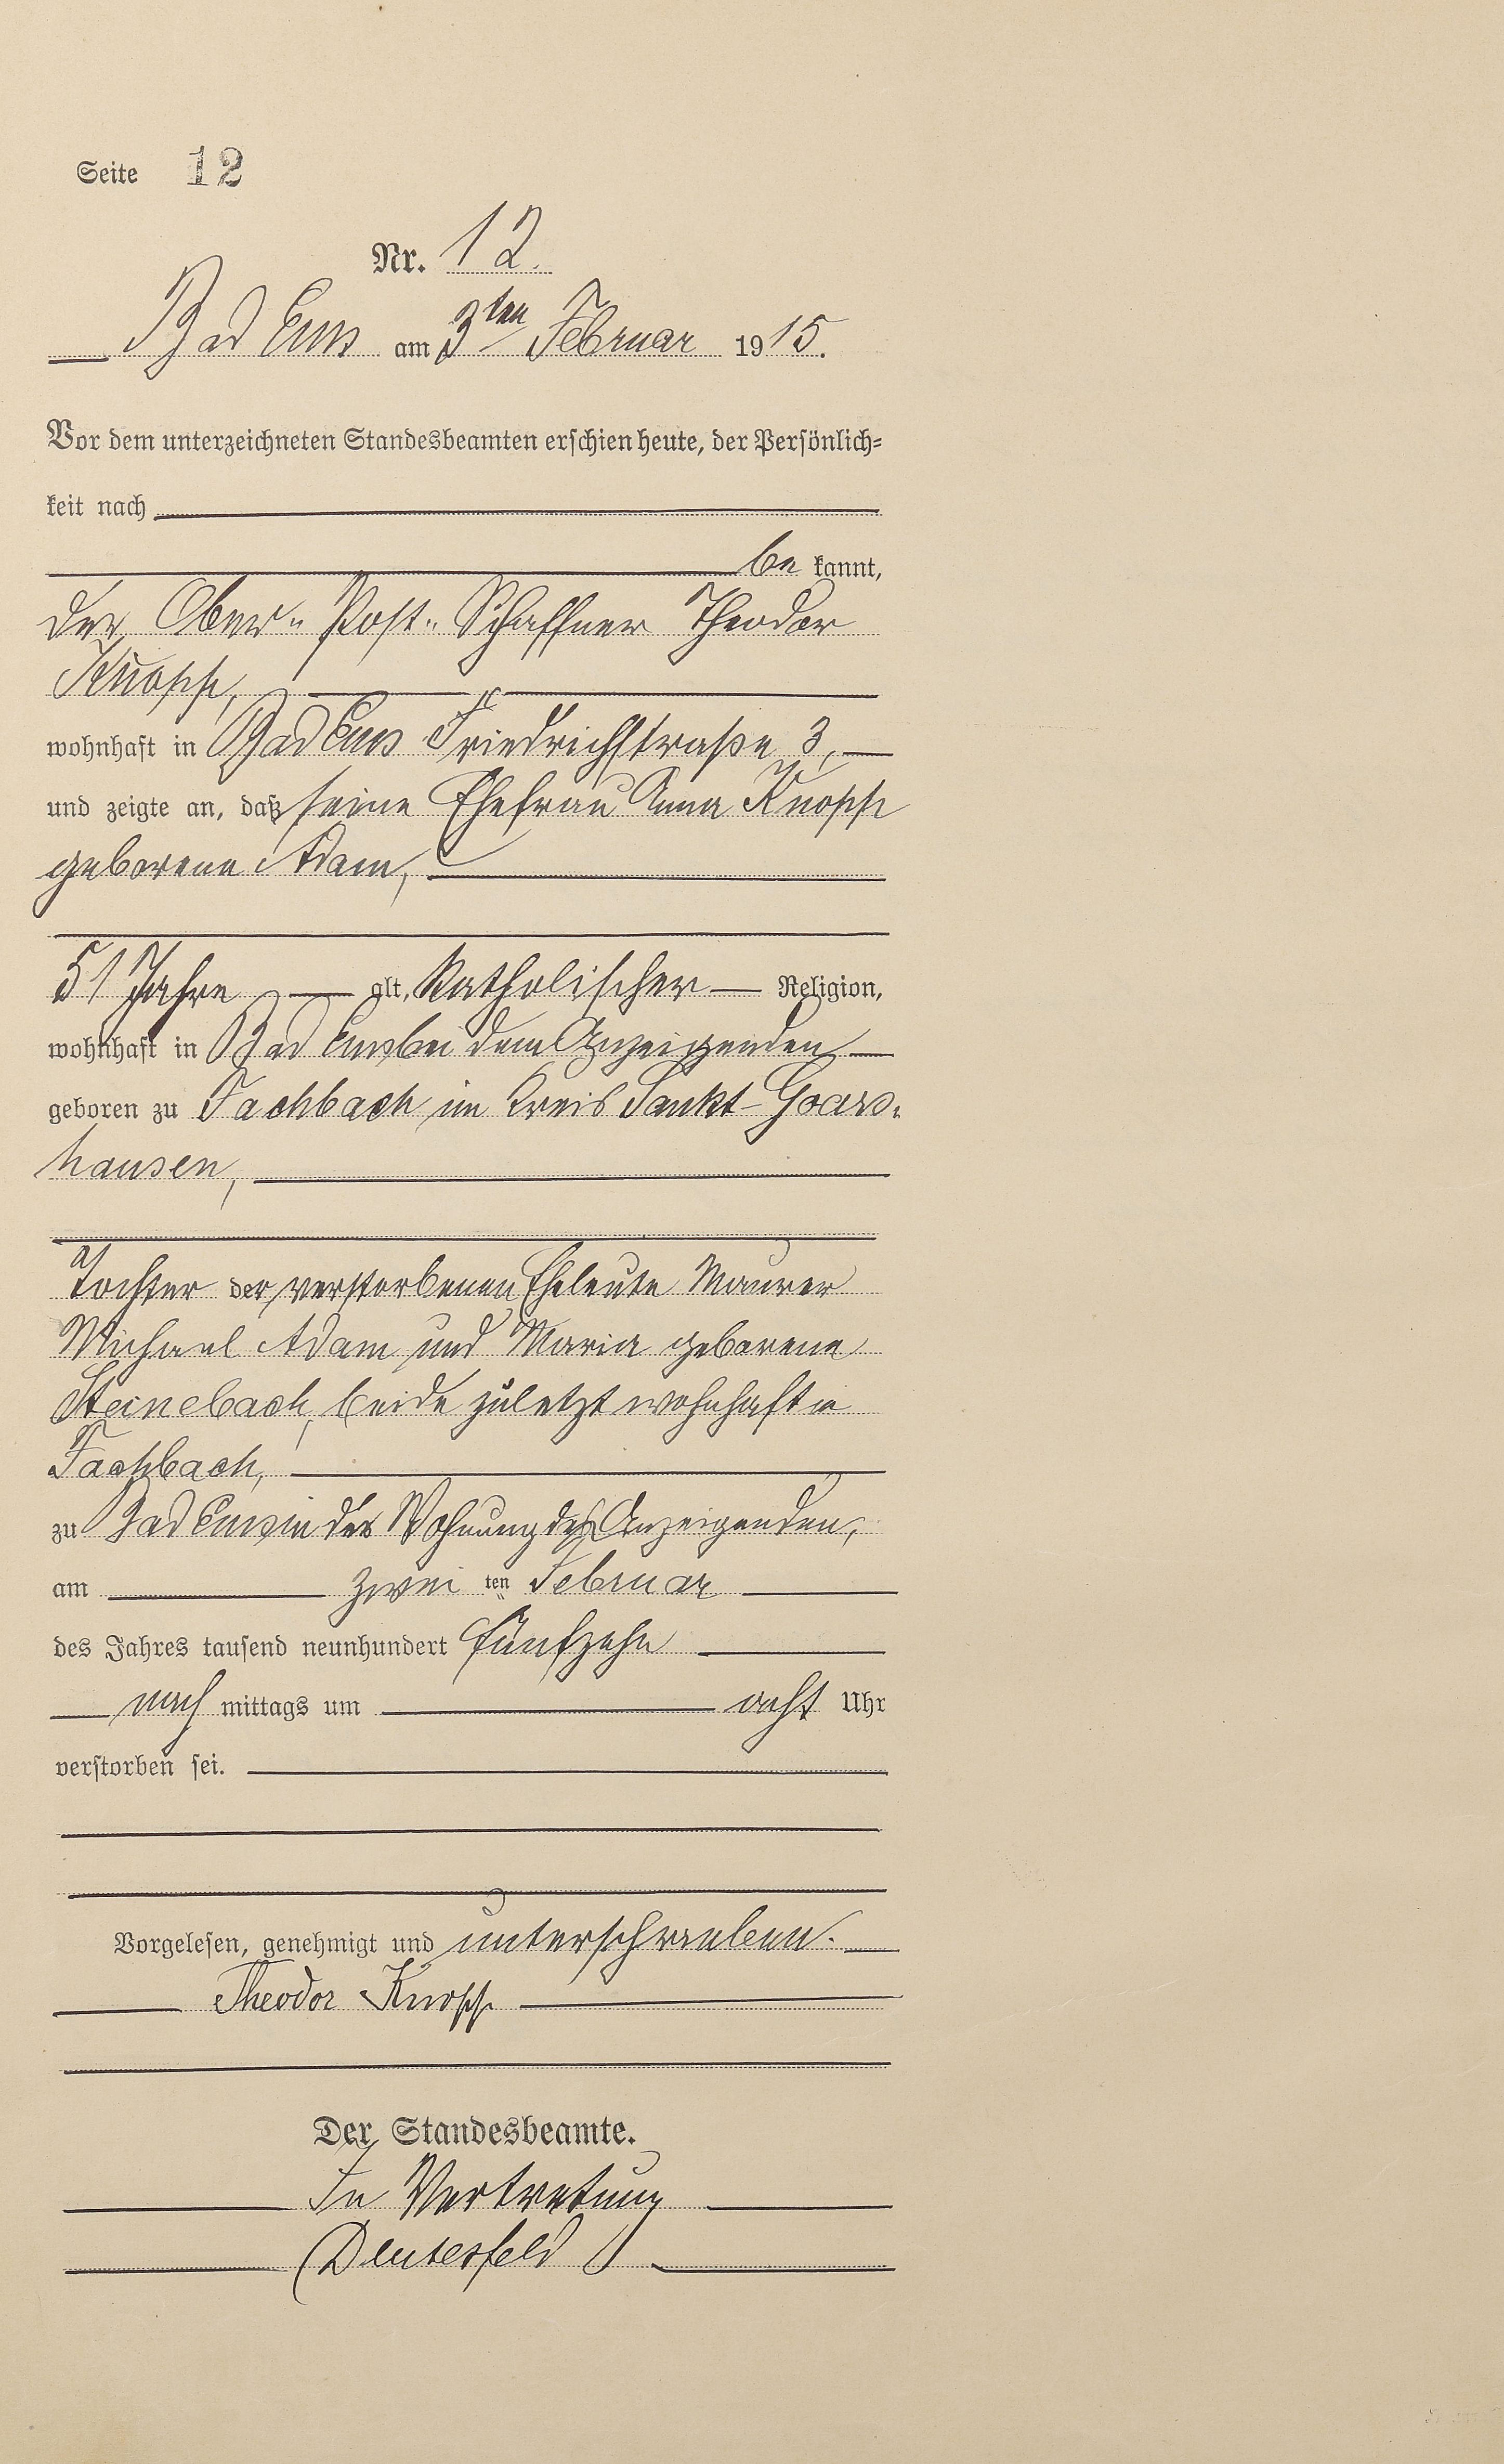 Seite 12
Nr. 12.
Bad Ems am 3ten Februar 1915.
Vor dem unterzeichneten Standesbeamten erschien heute, der Persönlich-
keit nach
be kannt,
der Ober-Post-Schaffner Theodor
Knopp,
wohnhaft in Bad Ems Friedrichstraße 3,
und zeigte an, daß seine Ehefrau Anna Knopp
geborene Adam,
51 Jahre alt, katholischer Religion,
wohnhaft in Bad Ems bei dem Anzeigenden
geboren zu Fachbach im Kreis Sankt-Goars-
hausen,
Tochter der verstorbenen Eheleute Maurer
Michael Adam und Maria geborene
Steinebach, beide zuletzt wohnhaft in
Fachbach,
zu Bad Ems in der Wohnung des Anzeigenden,
am zwei ten Februar
des Jahres tausend neunhundert fünfzehn
nach mittags um acht Uhr
verstorben sei.
Vorgelesen, genehmigt und unterschrieben.
Theodor Knopp
Der Standesbeamte.
In Vertretung
Deutesfeld